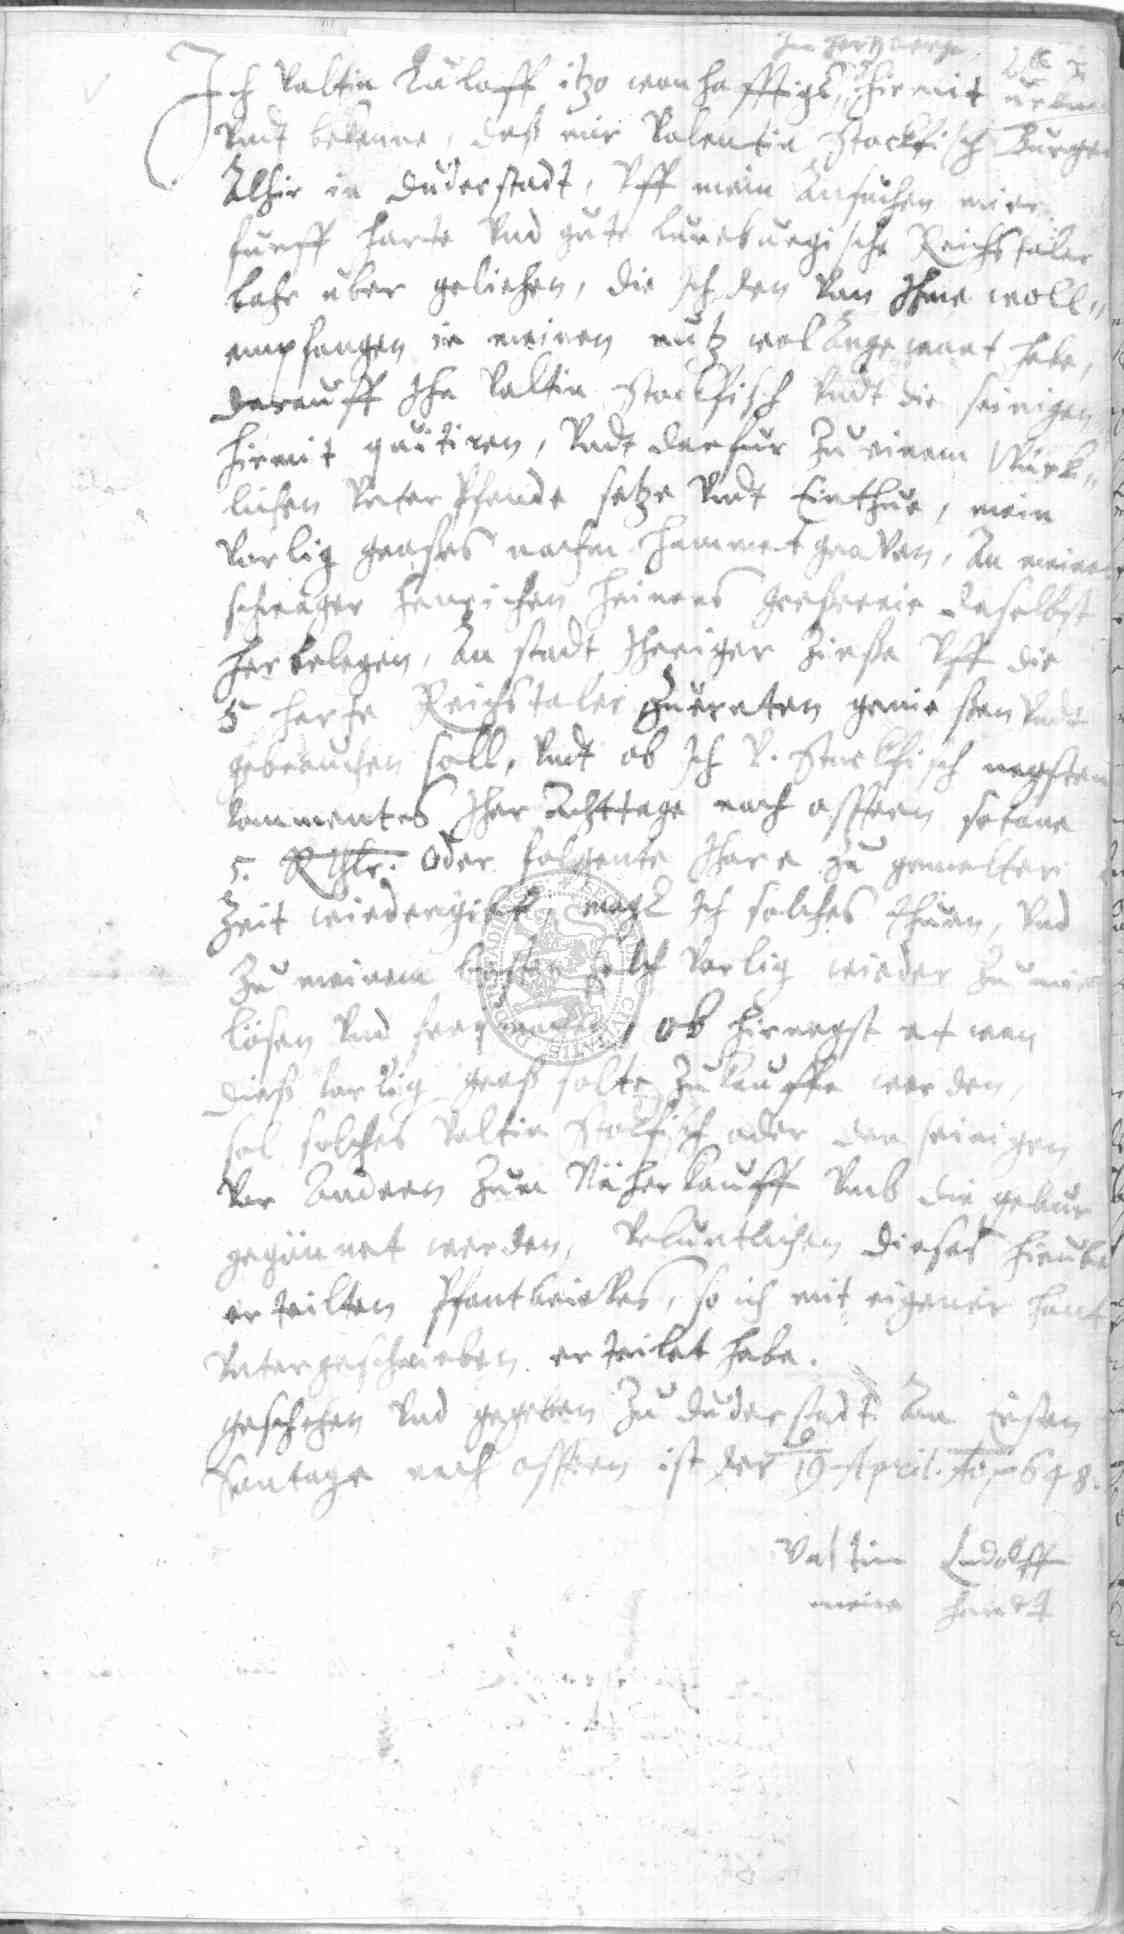 Im Hertzberge
Ich Valtin Lüloff itzo wonhafftigk, hirmit
Vndt bekenne, daß mir Valentin Stockfisch Burger
Alhir in Duderstadt, Vff mein Ansuchen
funff harte Vnd gute Luneburgische Reichstaler
bahr uber geliehen, die Ich den Von Ihme woll,,
empfangen in meinen nutz wol Angewant habe,
darauff Ihn Valtin Stockfisch Vndt die seinigen
hirmit quitiren, Vndt darfur Zu einem Würk,,
lichen Vnter Pfande setze Vndt Einthue, mein
Vorlig graßes Hammert graben, An meinem
schwager Henrichen Heinens daselbst
her belegen, An stadt Iheriger Zinse Vff die
5 harte Reichstaler genießen Vndt
gebrauchen soll, Vndt ob Ich V. Stockfisch negsten
kommentes Iher Achttage nach ostern sotane
5. Rthlr. Oder folgente Ihare zu gemelter
Zeit wiedergibt, magk Ich solches thuen, Vnd
Zu meinem besten solch Vorlig wieder Zu mir
lösen Vnd ob hirnegst etwan
dieß Vorlig graß solte Zukauffe werden,
sol solches Valtin Stockfisch oder den seinigen
Vor Andern Zum Näherkauff Vmb die gebur
gegönnet werden, Vrkuntlichen dieses hirüber
erteilten Pfantbriebes, so ich mit eigener hant
Vntergeschrieben erteilet habe.
geschehen Vnd gegeben Zu Duderstadt Am Ersten
Sontage nach ostern ist der 19 April. Ao 1648.
Valtin Ludolff
meine handt